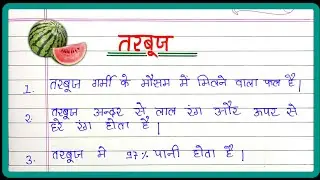 तरबूज
1. तरबूज गर्मी के मौसम में मिलने वाला फल है।
2. तरबूज अन्दर से लाल रंग और ऊपर से
हरे रंग होता है।
3. तरबूज मे 97% पानी होता है।